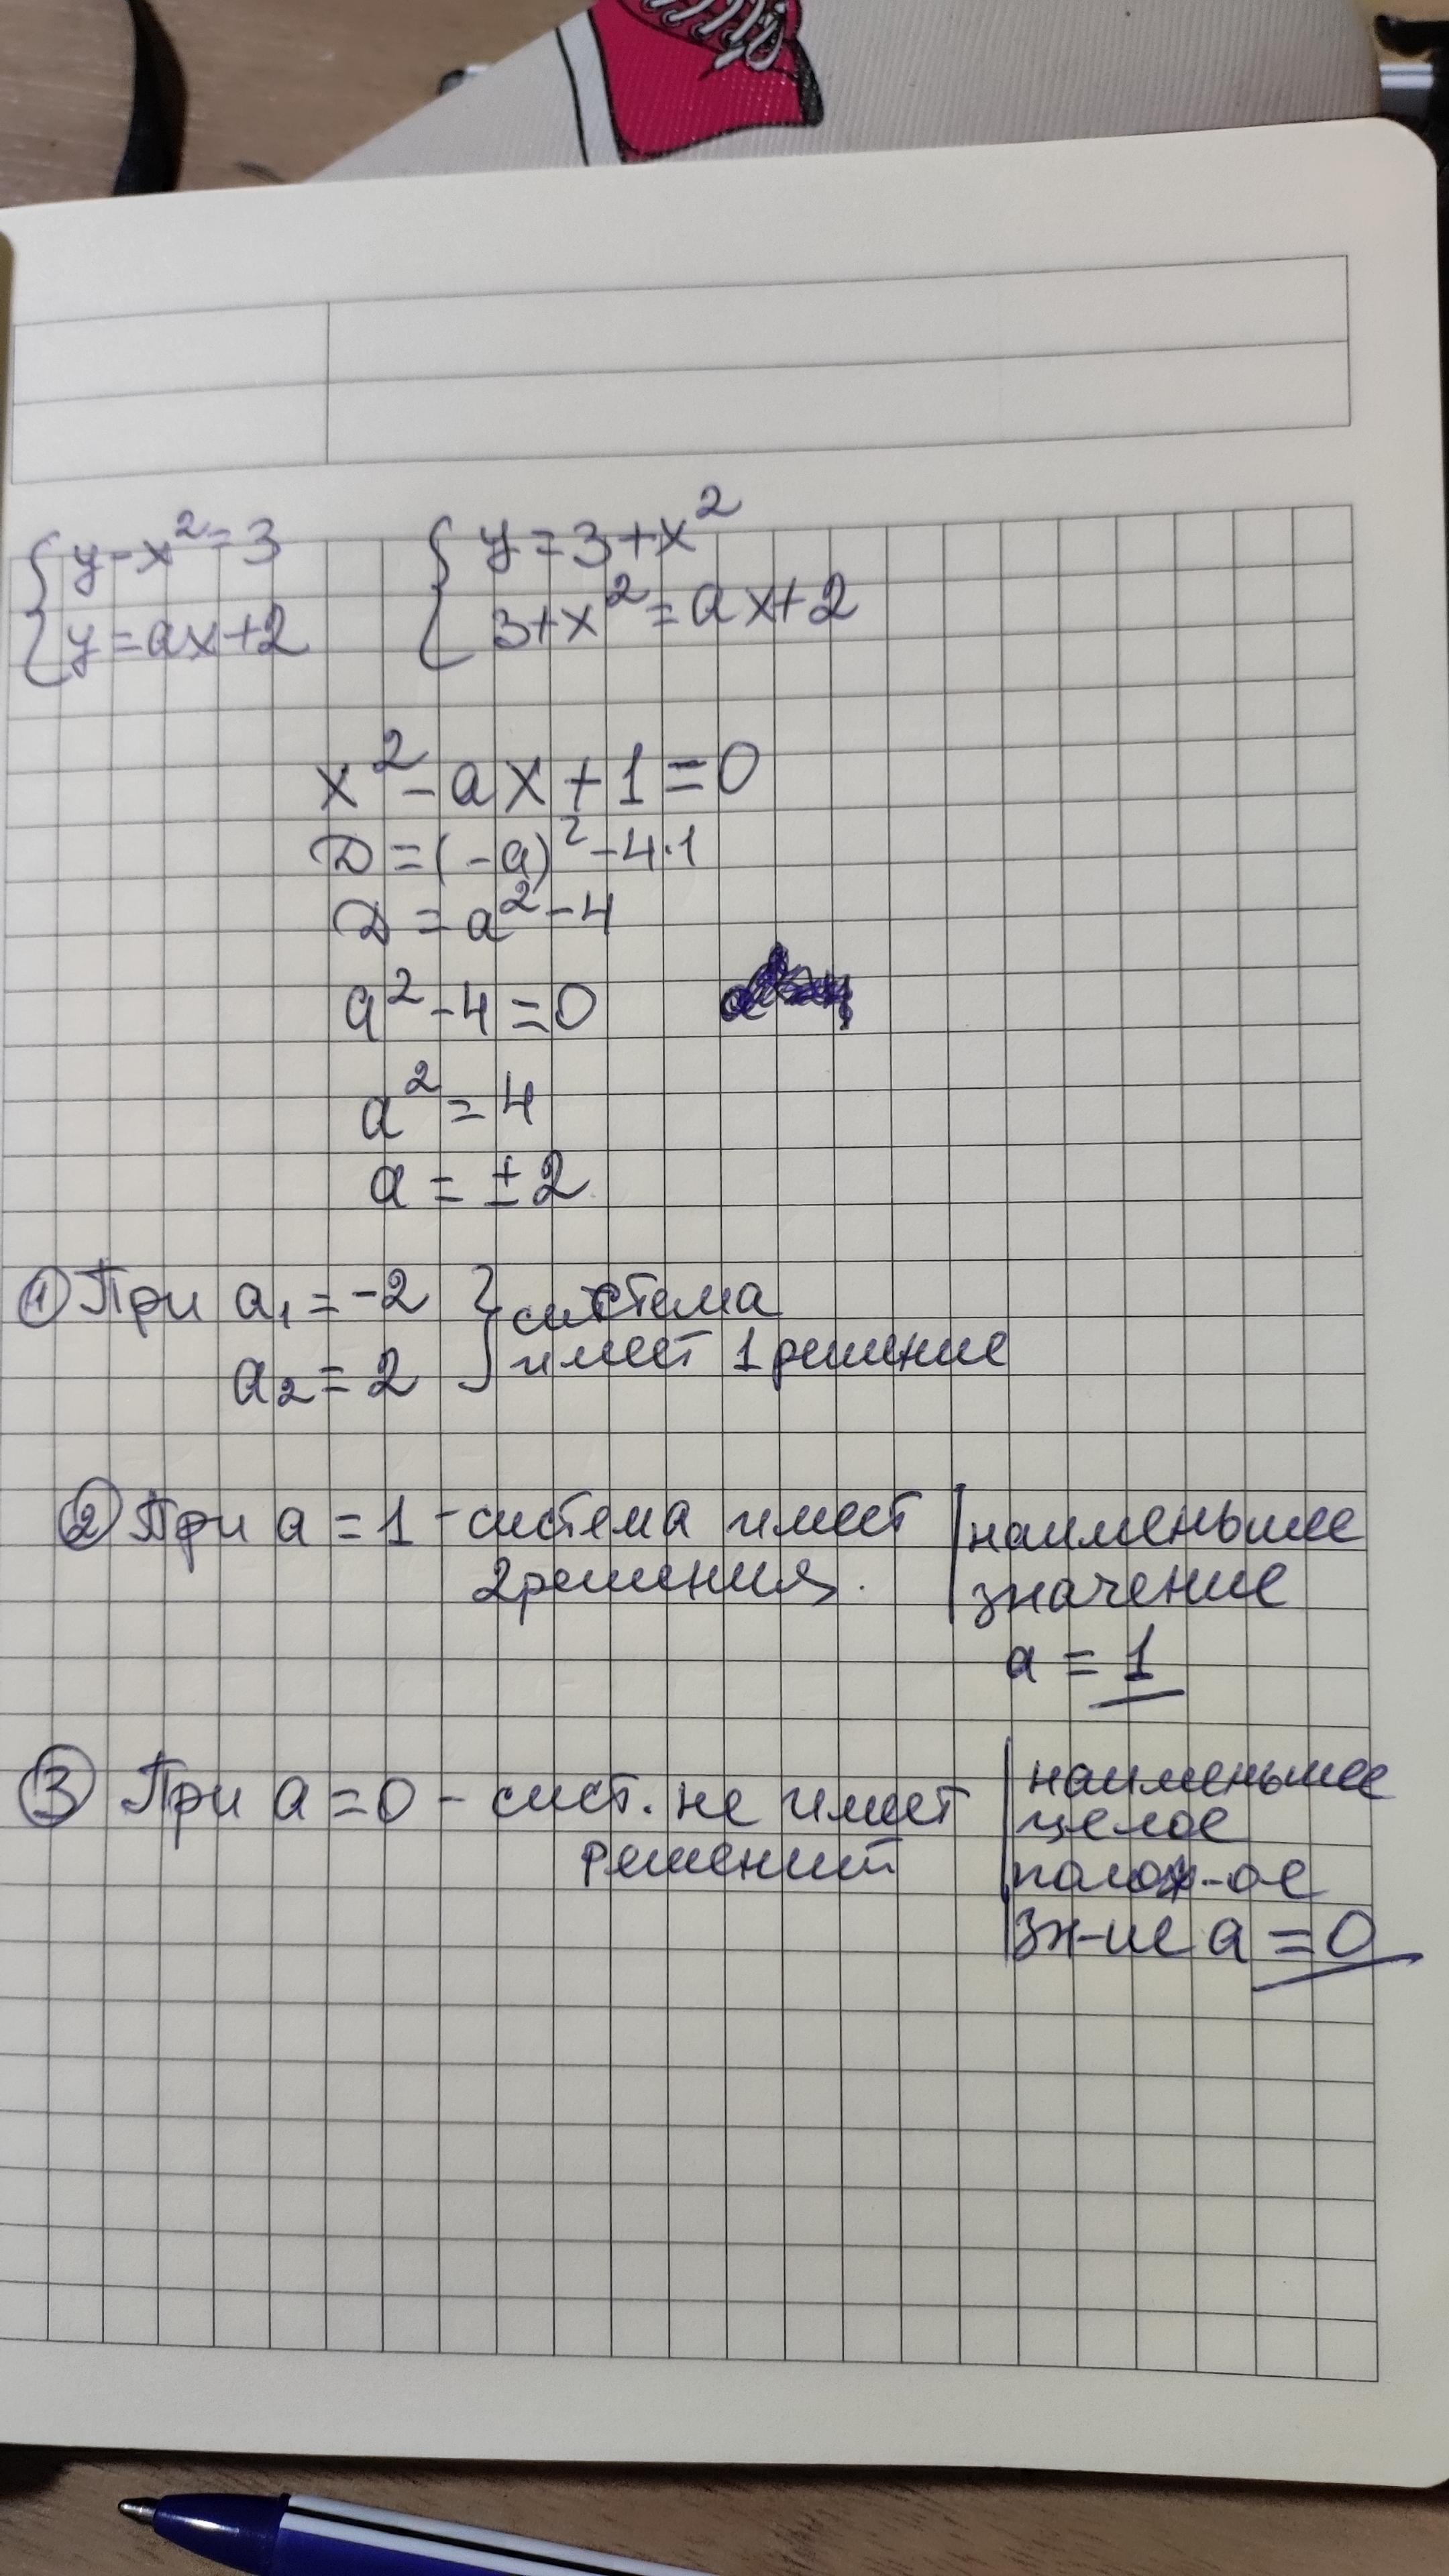 { y-x²=3
{ y=ax+2
{ y=3+x²
{ 3+x²=ax+2
x²-ax+1=0
D=(-a)²-4·1
D=a²-4
a²-4=0
a²=4
a=±2
① При a₁=-2 } система
a₂=2 } имеет 1 решение
② При a=1 - система имеет
2 решения.
наименьшее
значение
a=1
③ При a=0 - сист. не имеет
решений
наименьшее
целое
полож-ое
зн-ие a=0